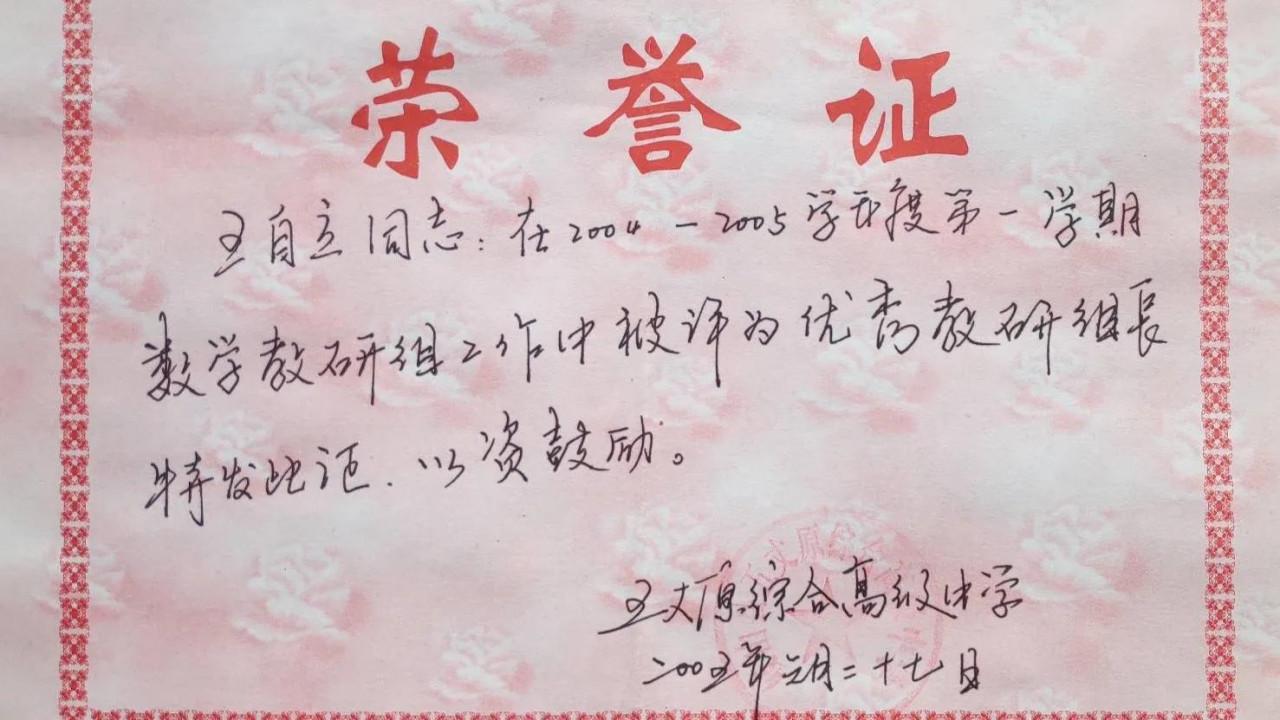 荣誉证
王自立同志：在2004－2005学年度第一学期
数学教研组工作中被评为优秀教研组长
特发此证．以资鼓励。
五大原综合高级中学
二00五年六月二十七日